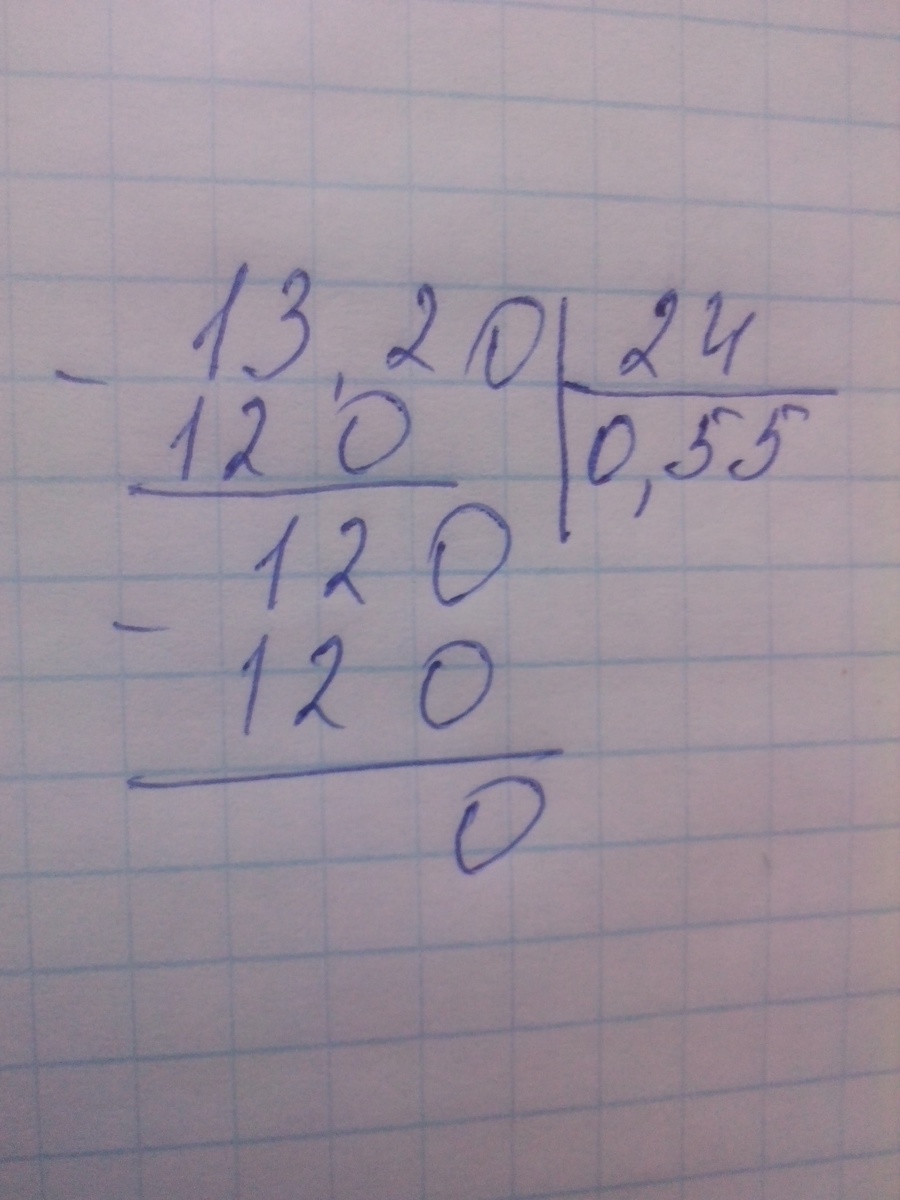 - 13,20 | 24
120 | 0,55
120
- 120
0